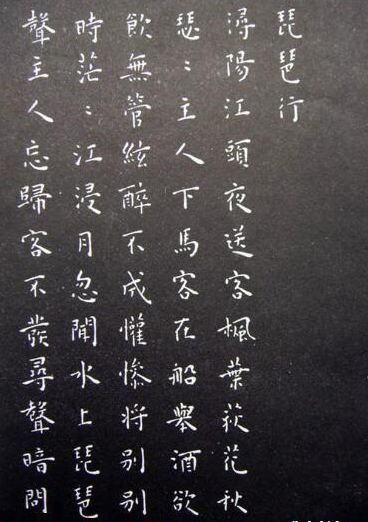 琵琶行
潯陽江頭夜送客楓葉荻花秋
瑟〻主人下馬客在船舉酒欲
飲無管絃醉不成懽慘将别别
時茫〻江浸月忽聞水上琵琶
聲主人忘歸客不發尋聲暗問